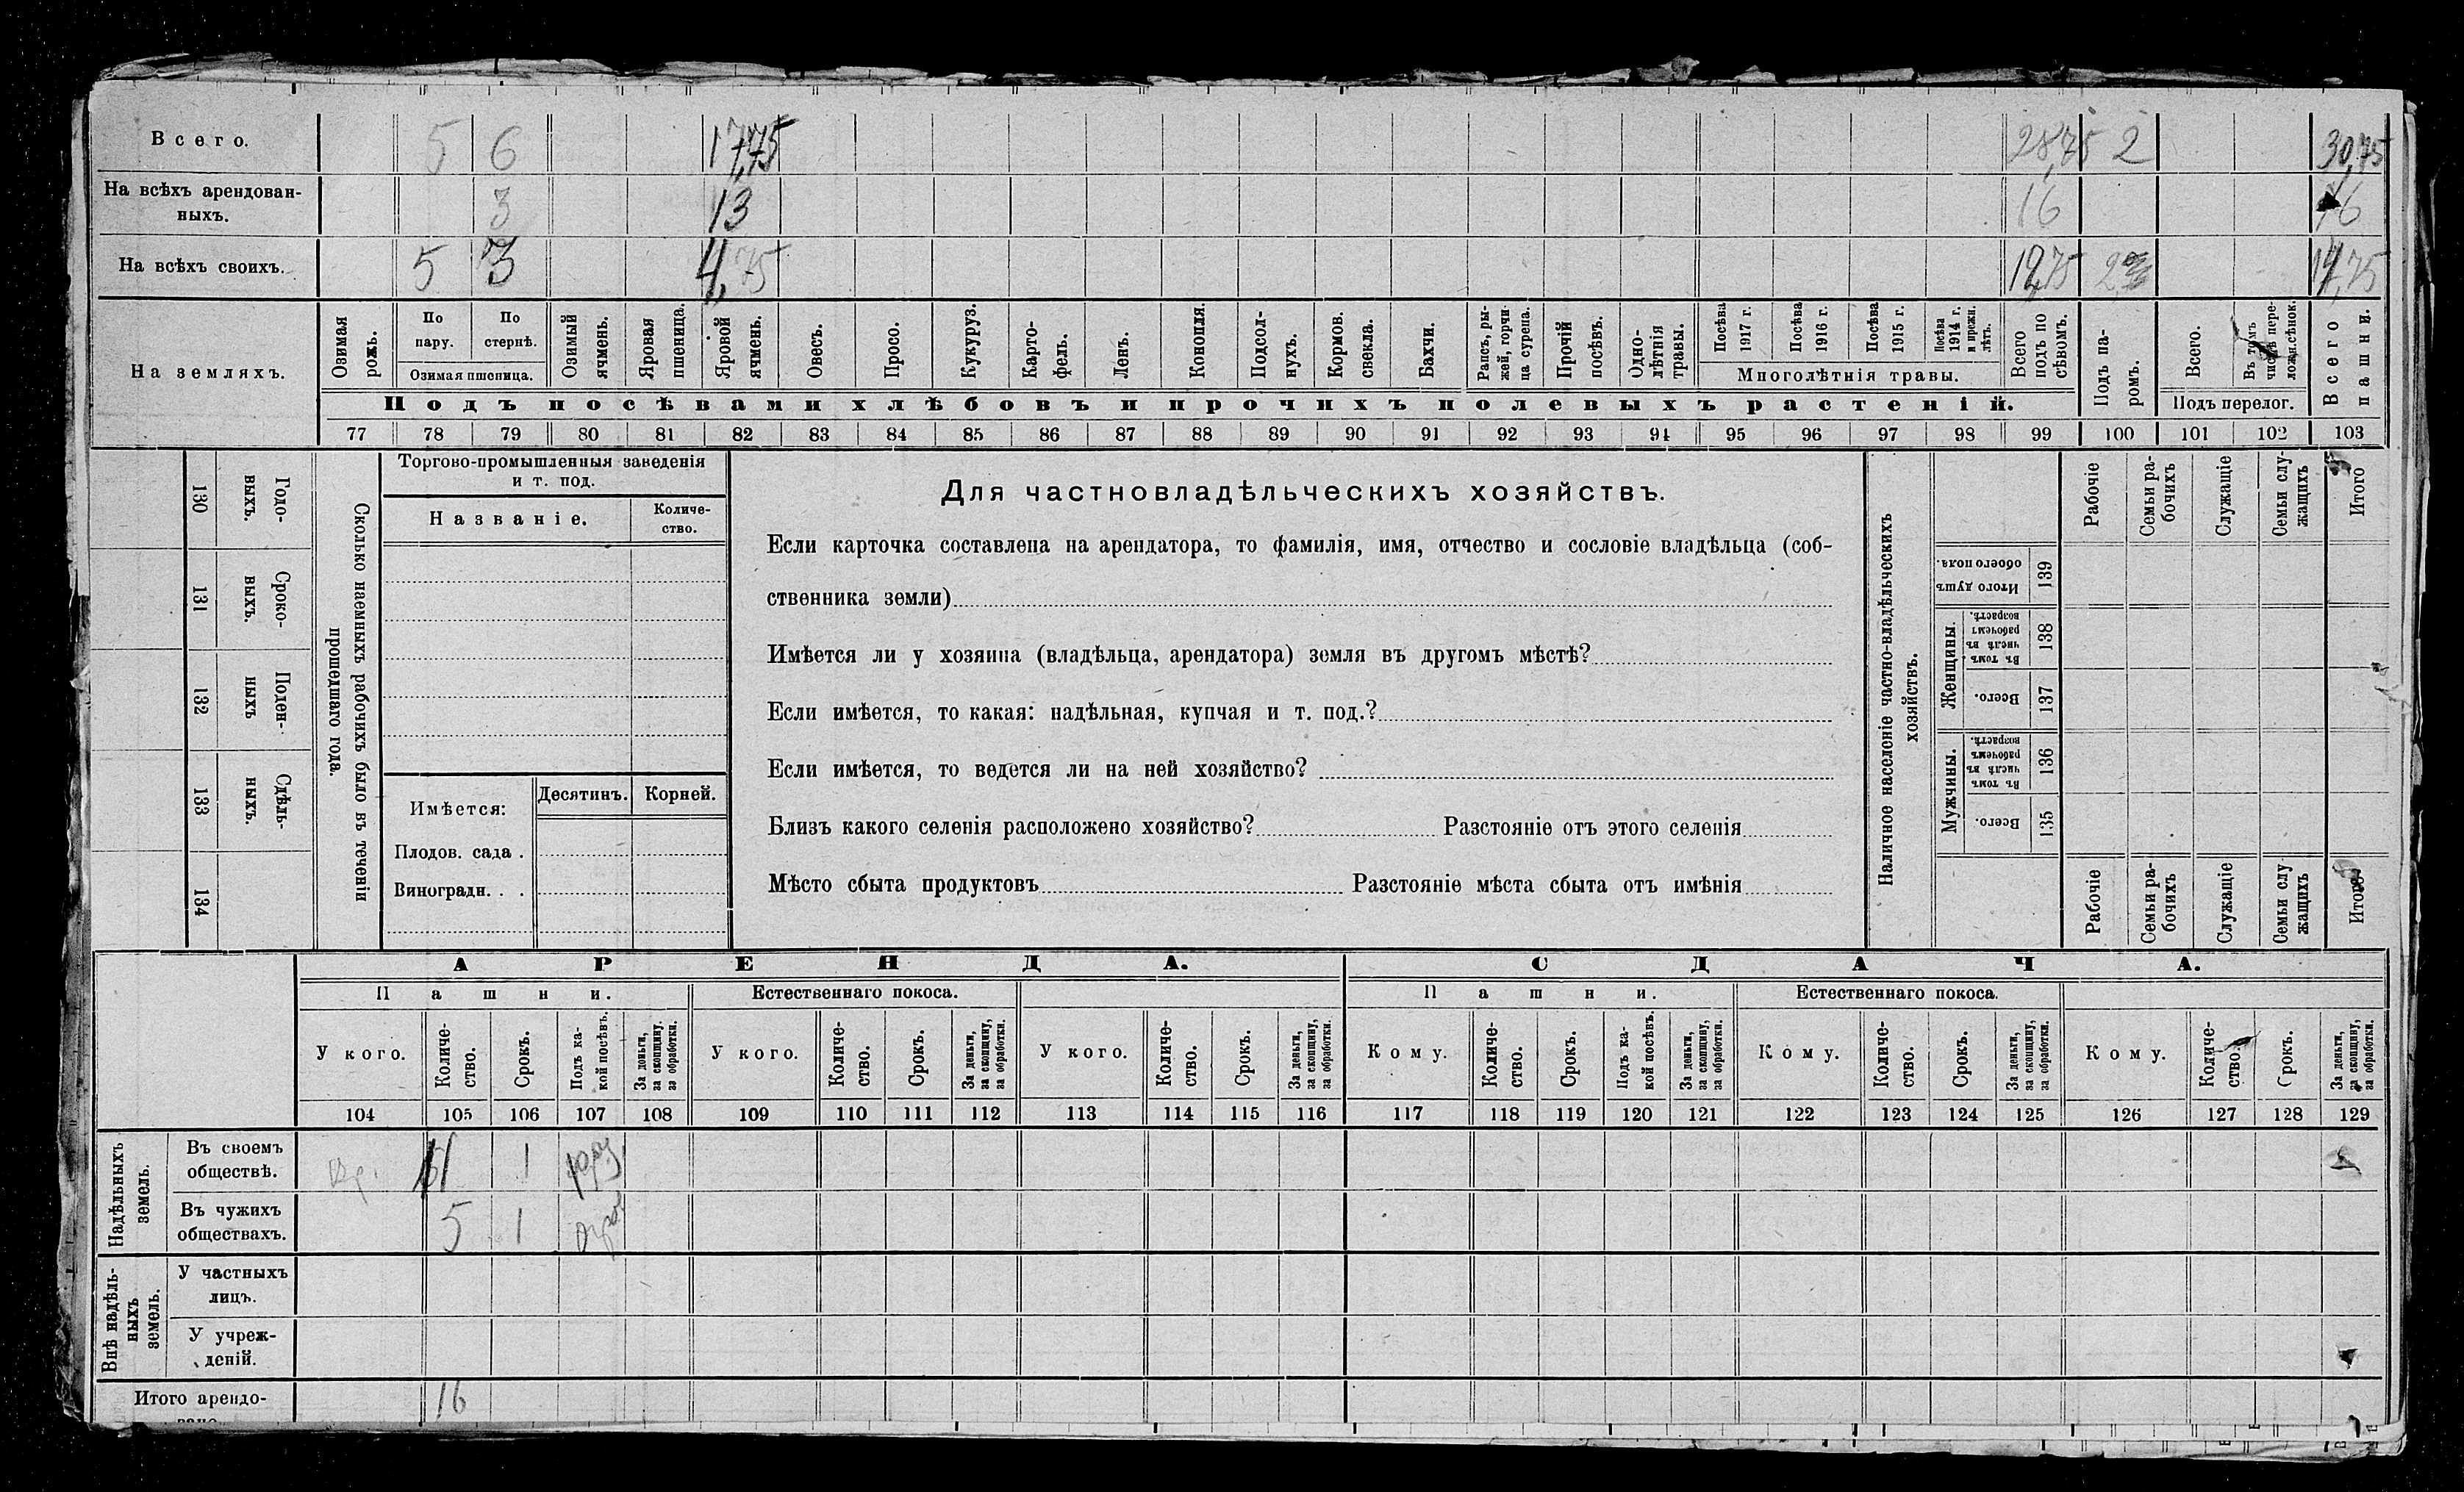 Всего. 5 6 17,75 28,75 2 30,75
На всѣхъ арендован-
ныхъ. 3 13 16 16
На всѣхъ своихъ. 5 3 4,75 12,75 2 14,75
На земляхъ.
Озимая рожь.
По пару.
По стернѣ.
Озимая пшеница.
Озимый ячмень.
Яровая пшеница.
Яровой ячмень.
Овесъ.
Просо.
Кукуруз.
Карто-
фель.
Ленъ.
Конопля.
Подсол-
нухъ.
Кормов. свекла.
Бахчи.
Рапсъ, ры-
жей, горчи-
ца сурепа.
Прочій посѣвъ.
Одно-
лѣтнія травы.
Посѣва 1917 г.
Посѣва 1916 г.
Посѣва 1915 г.
Посѣва 1914 г. и прежн. лѣтъ.
Многолѣтнія травы.
Всего подъ по сѣвомъ.
Подъ па-
ромъ.
Всего.
Въ томъ числѣ пере-
ложн. сѣнок.
Подъ перелог.
Всего пашни.
Подъ посѣвами хлѣбовъ и прочихъ полевыхъ растеній.
77 78 79 80 81 82 83 84 85 86 87 88 89 90 91 92 93 94 95 96 97 98 99 100 101 102 103
130 Годо-
выхъ.
131 Сроко-
выхъ.
132 Поден-
ныхъ
133 Сдѣль-
ныхъ.
134
Сколько наемныхъ рабочихъ было въ теченіи
прошедшаго года.
Торгово-промышленныя заведенія
и т. под.
Названіе.
Количе-
ство.
Имѣется:
Десятинъ. Корней.
Плодов. сада .
Виноградн. . .
Для частновладѣльческихъ хозяйствъ.
Если карточка составлена на арендатора, то фамилія, имя, отчество и сословіе владѣльца (соб-
ственника земли)
Имѣется ли у хозяина (владѣльца, арендатора) земля въ другомъ мѣстѣ?
Если имѣется, то какая: надѣльная, купчая и т. под.?
Если имѣется, то ведется ли на ней хозяйство?
Близъ какого селенія расположено хозяйство? Разстояніе отъ этого селенія
Мѣсто сбыта продуктовъ Разстояніе мѣста сбыта отъ имѣнія
Наличное населеніе частно-владѣльческихъ
хозяйствъ.
Рабочіе
Семьи ра-
бочихъ
Служащіе
Семьи слу-
жащихъ
Итого
Итого душ обоего пола. 139
Женщины.
Въ томъ числѣ въ рабочемъ возрастѣ. 138
Всего. 137
Мужчины.
Въ томъ числѣ въ рабочемъ возрастѣ. 136
Всего. 135
Рабочіе
Семьи ра-
бочихъ
Служащіе
Семьи слу
жащихъ
Итого
АРЕНДА. СДАЧА.
Пашни. Естественнаго покоса. Пашни. Естественнаго покоса.
У кого.
Количе-
ство.
Срокъ.
Подъ ка-
кой посѣвъ.
За деньги, за скопщину, за обработки.
У кого.
Количе-
ство.
Срокъ.
За деньги, за скопщину, за обработки.
У кого.
Количе-
ство.
Срокъ.
За деньги, за скопщину, за обработки.
Кому.
Количе-
ство.
Срокъ.
Подъ ка-
кой посѣвъ.
За деньги, за скопщину, за обработки.
Кому.
Количе-
ство.
Срокъ.
За деньги, за скопщину, за обработки.
Кому.
Количе-
ство.
Срокъ.
За деньги, за скопщину, за обработки.
104 105 106 107 108 109 110 111 112 113 114 115 116 117 118 119 120 121 122 123 124 125 126 127 128 129
Надѣльныхъ земель.
Въ своемъ
обществѣ. 11 1
Въ чужихъ
обществахъ. 5 1
Внѣ надѣль-
ныхъ земель.
У частныхъ
лицъ.
У учреж-
деній.
Итого арендо- 16